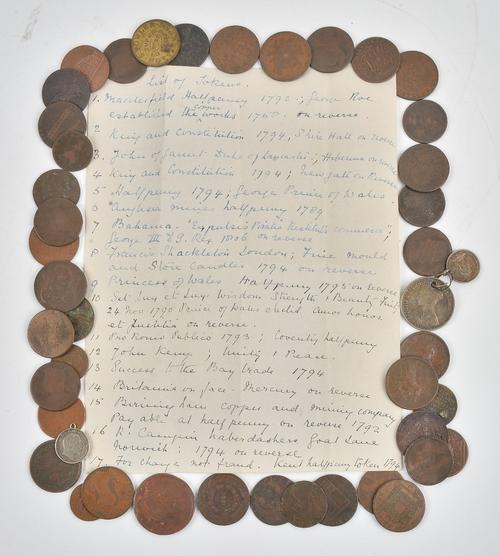 List of Tokens.
1. Macclesfield Halfpenny 1792; George Roe
established the copper works 1758. on reverse.
2 King and Constitution 1794; Shire Hall on reverse
3. John of Gaunt Duke of Lancaster; on reverse
4 King and Constitution 1794; Newgate on Reverse
5 Halfpenny 1794; George Prince of Wales.
6 "Anglesea mines halfpenny 1789
7 Bahama. "Expulsis Piratis Restituta commercia";
George III D.G. Rex 1806 on reverse
8 Francis Shackleton London; Fine Mould
and Store Candles 1794 on reverse
9 Princess of Wales Halfpenny 1795 on reverse
10 Sit Lux et Lux Wisdom Strength & Beauty.
24 Nov 1790 Prince of Wales elected Amor honor
et Justitia on reverse.
11 Pro Bono Publico 1793; Coventry halfpenny
12 John Kemp; Unity & Peace.
13 Success to the Bay trade 1794
14 Britannia on face - Mercury on reverse
15 Birmingham copper and mining company
Payable at halfpenny on reverse 1792
16 R. Campin haberdashers Goat Lane
Norwich: 1794 on reverse
17. For change not fraud. Kent halfpenny token 1794